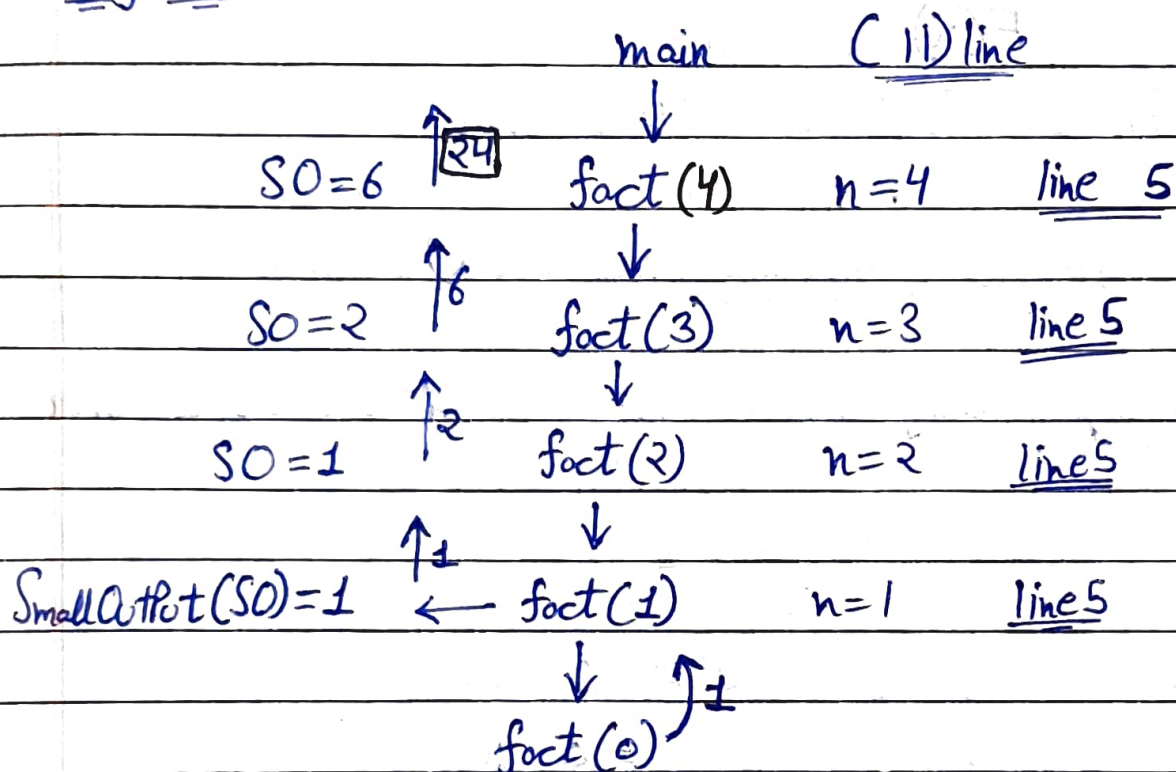 main (11) line
24
SO=6 fact(4) n=4 line 5
6
SO=2 fact(3) n=3 line 5
2
SO=1 fact(2) n=2 line 5
1
Small Output (SO)=1 fact(1) n=1 line 5
1
fact(0)